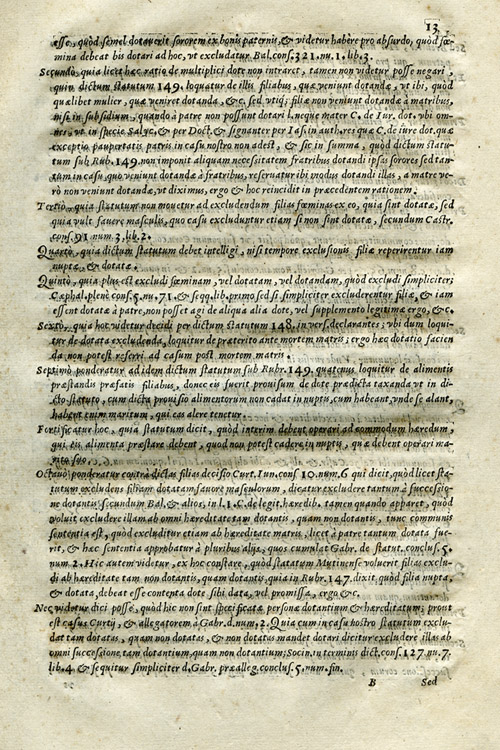 13
esse, quòd semel dotauerit sororem ex bonis paternis, & videtur habere pro absurdo, quòd fœ-
mina debeat bis dotari ad hoc, vt excludatur Bal. cons. 321. nu. 1. lib. 3.
Secundo, quia licet hæc ratio de multiplici dote non intraret, tamen non videtur posse negari,
quin dictum statutum 149. loquatur de illis filiabus, quæ veniunt dotandæ, vt ibi, quòd
quælibet mulier, quæ veniret dotanda, &c. sed vtiq; filiæ non veniunt dotandæ à matribus,
nisi in subsidium, quando à patre non possunt dotari l. neque mater C. de iur. dot. vbi om-
nes, vt in specie Salyc, & per Doct. & signanter per Ias. in auth. res quæ C. de iure dot. quæ
exceptio paupertatis patris in casu nostro non adest, & sic in summa, quòd dictum statu-
tum sub Rub. 149. non imponit aliquam necessitatem fratribus dotandi ipsas sorores sed tan-
tum in casu, quo veniunt dotandæ à fratribus, reseruatur ibi modus dotandi illas, a matre ve-
rò non veniunt dotandæ, vt diximus, ergo & hoc reincidit in præcedentem rationem.
Tertio, quia statutum non mouetur ad excludendum filias fœminas ex eo, quia sint dotatæ, sed
quia vult fauere masculis, quo casu excluduntur etiam si non sint dotatæ, secundum Castr.
cons. 91. num. 3. lib. 2.
Quarto, quia dictum statutum debet intelligi, nisi tempore exclusionis filiæ reperirentur iam
nuptæ, & dotatæ.
Quinto, quia plus est excludi fœminam, vel dotatam, vel dotandam, quòd excludi simpliciter;
Cæphal. plenè cons. 5. nu. 71. & seqq. lib. primo sed si simpliciter excluderentur filiæ, & iam
essent dotatæ à patre, non posset agi de aliqua alia dote, vel supplemento legitimæ ergo, &c.
Sexto, quia hoc videtur decidi per dictum statutum 148. in vers. declarantes; vbi dum loqui-
tur de dotata excludenda, loquitur de præterito ante mortem matris; ergo hæc dotatio facien
da non potest referri ad casum post mortem matris.
Septimò ponderatur ad idem dictum statutum sub Rubr. 149. quatenus loquitur de alimentis
præstandis præfatis filiabus, donec eis fuerit prouisum de dote prædicta taxanda vt in di-
cto statuto, cum dicta prouisio alimentorum non cadat in nuptis, cum habeant, vnde se alant,
habent enim maritum, qui eas alere tenetur.
Fortificatur hoc, quia statutum dicit, quòd interim debent operari ad commodum hæredum,
qui eis alimenta præstare debent, quod non potest cadere in nuptis, quæ debent operari ma-
rito suo.
Octauò ponderatur contra dictas filias decisio Curt. Iun. cons. 10. num. 6 qui dicit, quòd licet sta-
tutum excludens filiam dotatam fauore masculorum, dicatur excludere tantum à successio-
ne dotantis secundum Bal. & alios, in l. 1. C. de legit. hæredib. tamen quando apparet, quòd
voluit excludere illam ab omni hæreditate tam dotantis, quam non dotantis, tunc communis
sententia est, quòd excluditur etiam ab hæreditate matris, licet à patre tantum dotata fue-
rit, & hæc sententia approbatur à pluribus alijs, quos cumulat Gabr. de statut. conclus. 5.
num. 2. Hic autem videtur, ex hoc constare, quòd statutum Mutinense voluerit filia exclu-
di ab hæreditate tam non dotantis, quam dotantis, quia in Rubr. 147. dixit, quòd filia nupta,
& dotata, debeat esse contenta dote sibi data, vel promissa, ergo &c.
Nec videtur dici posse, quòd hic non sint specificatæ persona dotantium & hæreditatum; prout
est casus Curtij, & allegatorem à Gabr. d. num. 2. Quia cum in casu nostro statutum exclu-
dat tam dotatas, quam non dotatas, & non dotatas mandet dotari dicitur excludere illas ab
omni successione, tam dotantium, quam non dotantium; Socin. in terminis dict. cons. 127. nu. 7.
lib. 4. & sequitur simpliciter d. Gabr. præalleg. conclus. 5. num. fin.
B Sed